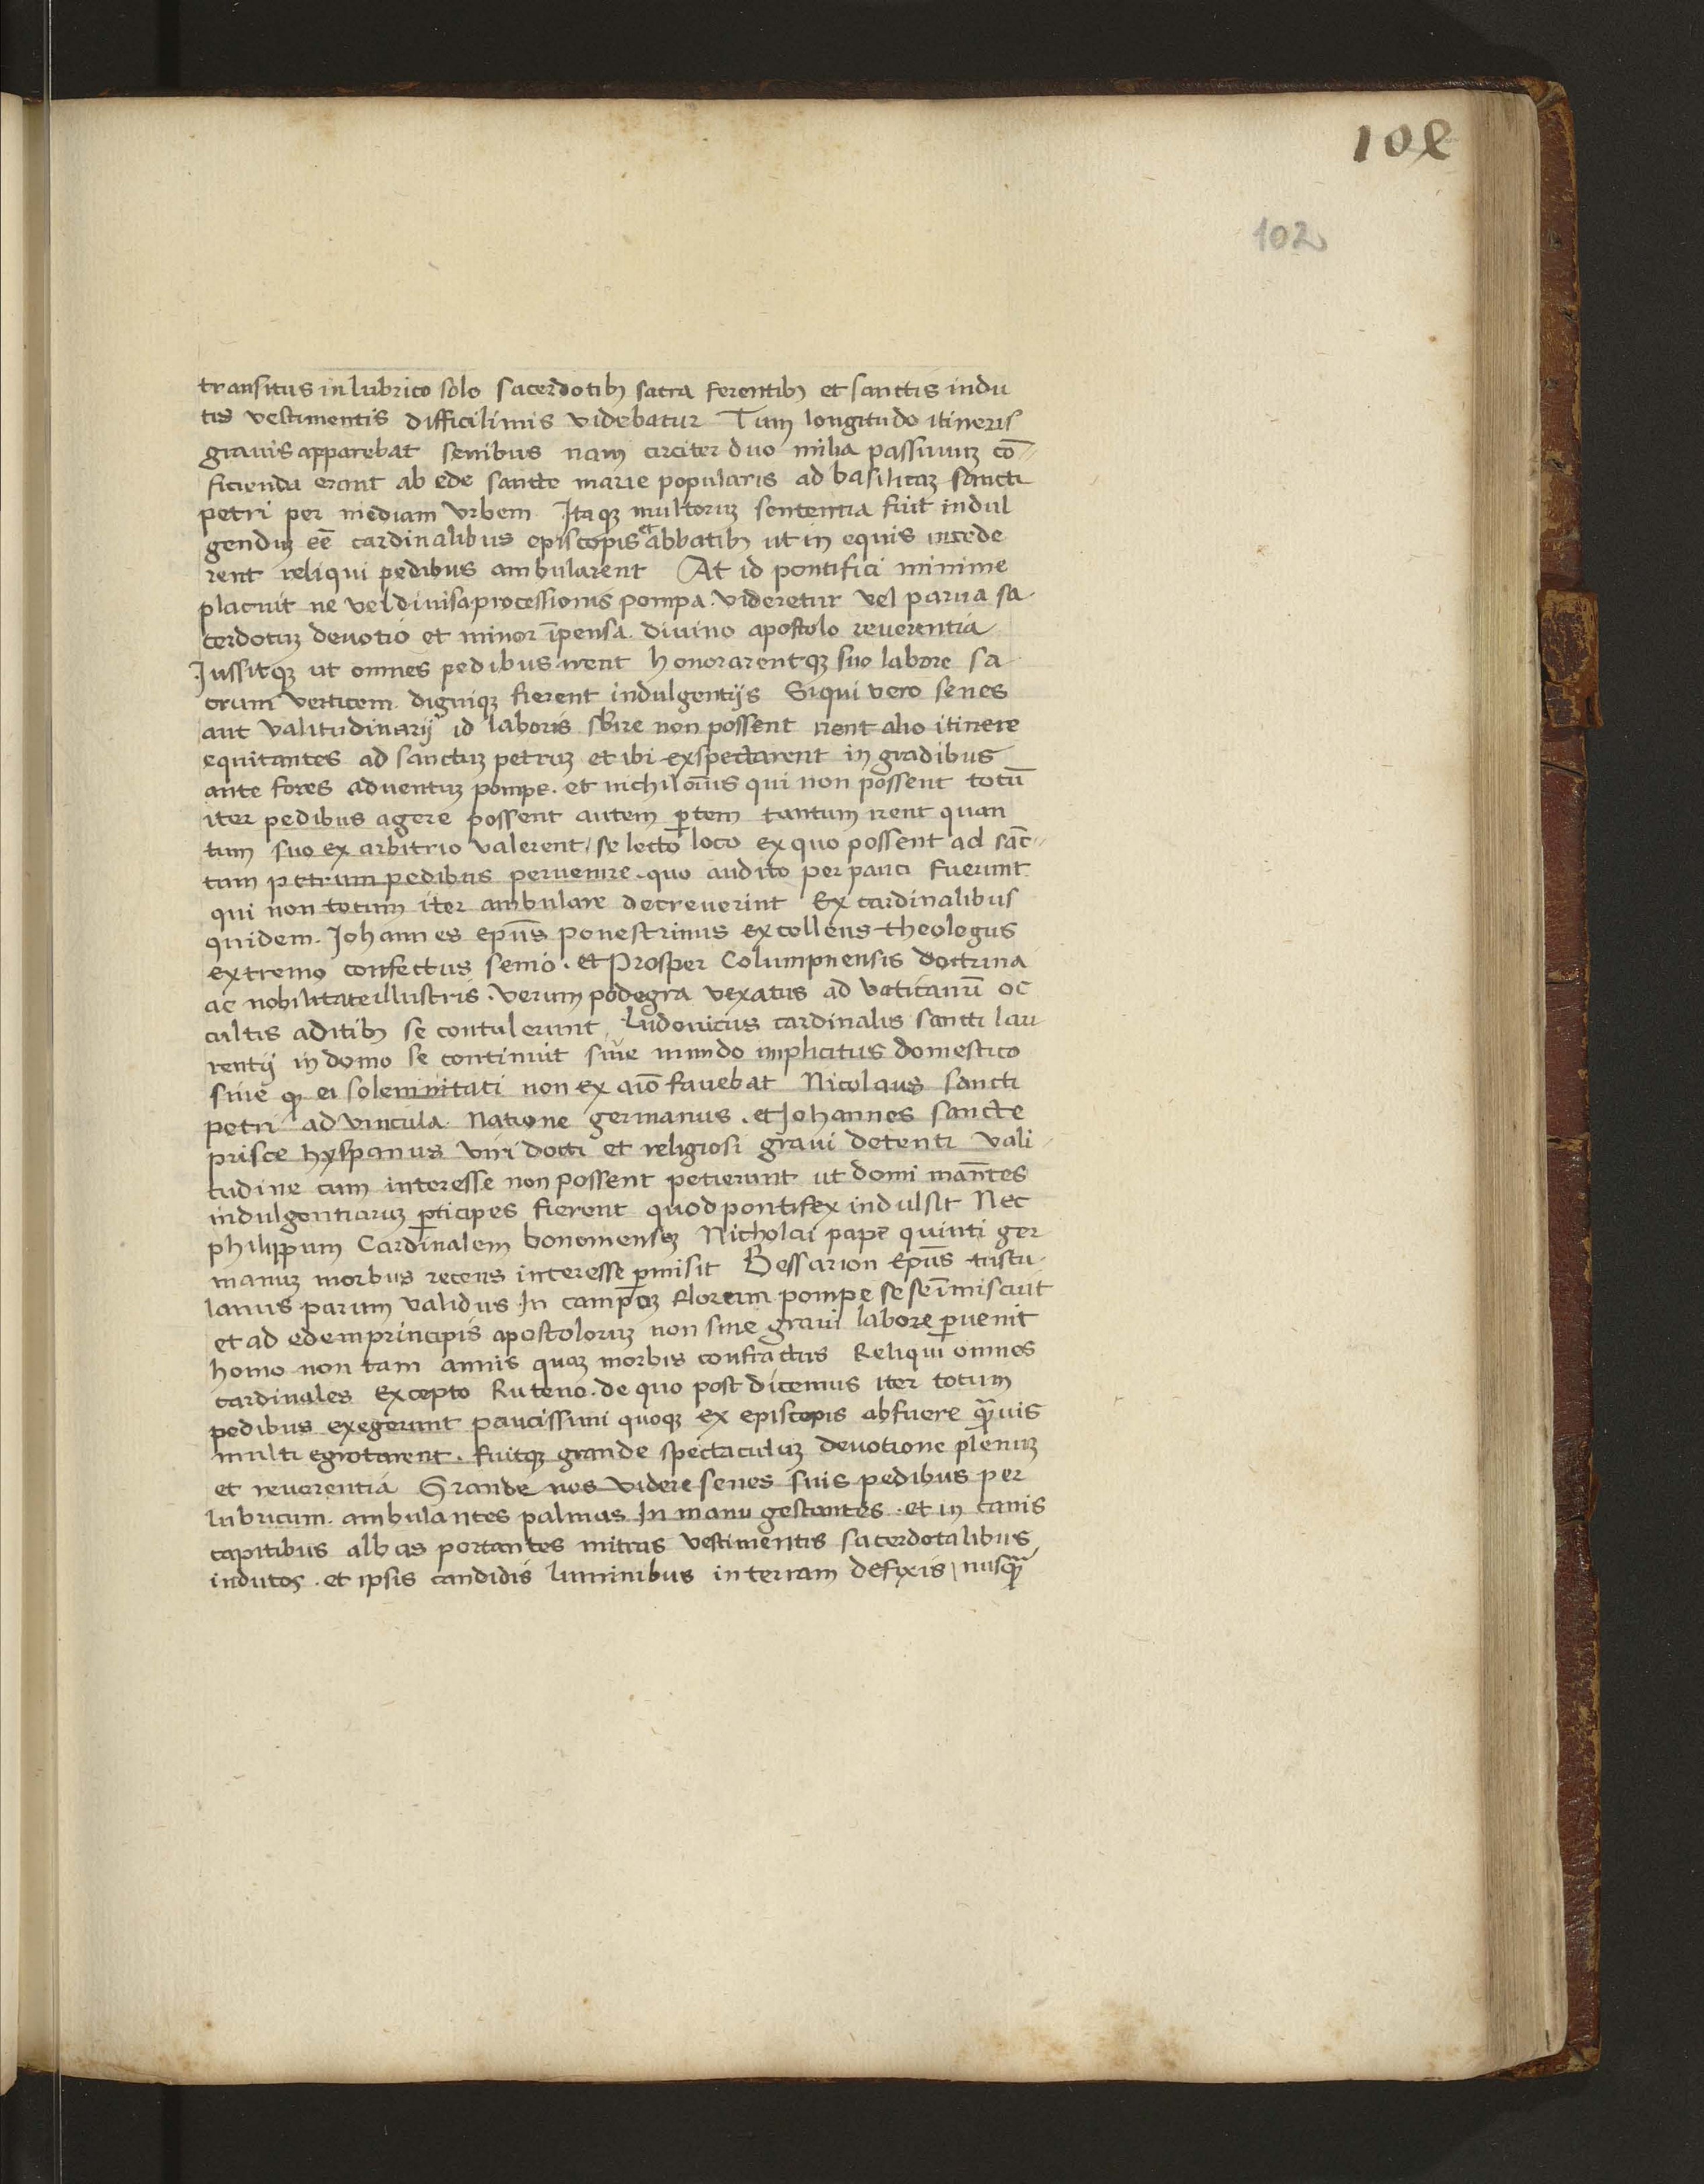 102
102
transitus in lubrico solo sacerdotibꝫ sacra ferentibꝫ et sanctis indu
tis vestimentis difficilimis videbatur Tum longitudo itineris
grauis apparebat senibus nam circiter duo milia passuuꝫ cō-
ficienda erant ab ede sancte marie popularis ad basilicaꝫ sancti
petri per mediam vrbem Itaqꝫ multoruꝫ sententia fuit indul
genduꝫ eē cardinalibus episcopis et abbatibꝫ ut in equis incede
rent reliqui pedibus ambularent At id pontifici minime
placuit ne vel diuisa processionis pompa. videretur vel parua sa-
cerdotuꝫ deuotio et minor īpensa. diuino apostolo reuerentia
Jussitqꝫ ut omnes pedibus irent honorarentqꝫ suo labore sa
crum verticem. digniqꝫ fierent indulgentijs Siqui vero senes
aut valitudinarij id laboris sbire non possent irent alio itinere
equitantes ad sanctuꝫ petruꝫ et ibi exspectarent in gradibus
ante fores aduentuꝫ pompe. et nichiloīus qui non possent totū
iter pedibus agere possent autem ꝑtem tantum irent quan
tum suo ex arbitrio valerent / selecto loco ex quo possent ad sāc-
tum petrum pedibus peruenire. quo audito per pauci fuerunt
qui non totum iter ambulare decreuerint Ex cardinalibus
quidem. Johannes epūs ponestrinus excellens theologus
extremo confectus senio. et Prosper Columpnensis doctrina
ac nobilitate illustris. verum podegra vexatus ad vaticanū oc
cultis aditibꝫ se contulerunt, Ludouicus cardinalis sancti lau
rentij in domo se continuit siue mundo implicitus domestico
siue qꝫ ei solemnitati non ex aīo fauebat Nicolaus sancti
petri ad vincula. Natione germanus. et Johannes sancte
prisce hyspanus viri docti et religiosi graui detenti vali-
tudine cum interesse non possent petierunt ut domi manētes
indulgentiaruꝫ ꝑticipes fierent quod pontifex indulsit Nec
philippum Cardinalem bononienseꝫ Nicholai pape quinti ger
manuꝫ morbus recens interesse ꝑmisit Bessarion Epūs tuscu-
lanus parum validus In campoꝫ florum pompe sese īmiscuit
et ad edem principis apostoloruꝫ non sine graui labore ꝑuenit
homo non tam annis quaꝫ morbis confractus Reliqui omnes
cardinales excepto Ruteno. de quo post dicemus iter totum
pedibus exegerunt paucissimi quoqꝫ ex episcopis abfuere qꝫuis
multi egrotarent. fuitqꝫ grande spectaculuꝫ deuotione plenuꝫ
et reuerentia Grande nos videre senes suis pedibus per
lubricum. ambulantes palmas In manu gestantes. et in canis
capitibus albas portantes mitras vestimentis sacerdotalibus
indutos. et ipsis candidis luminibus in terram defixis / nusqꝫ